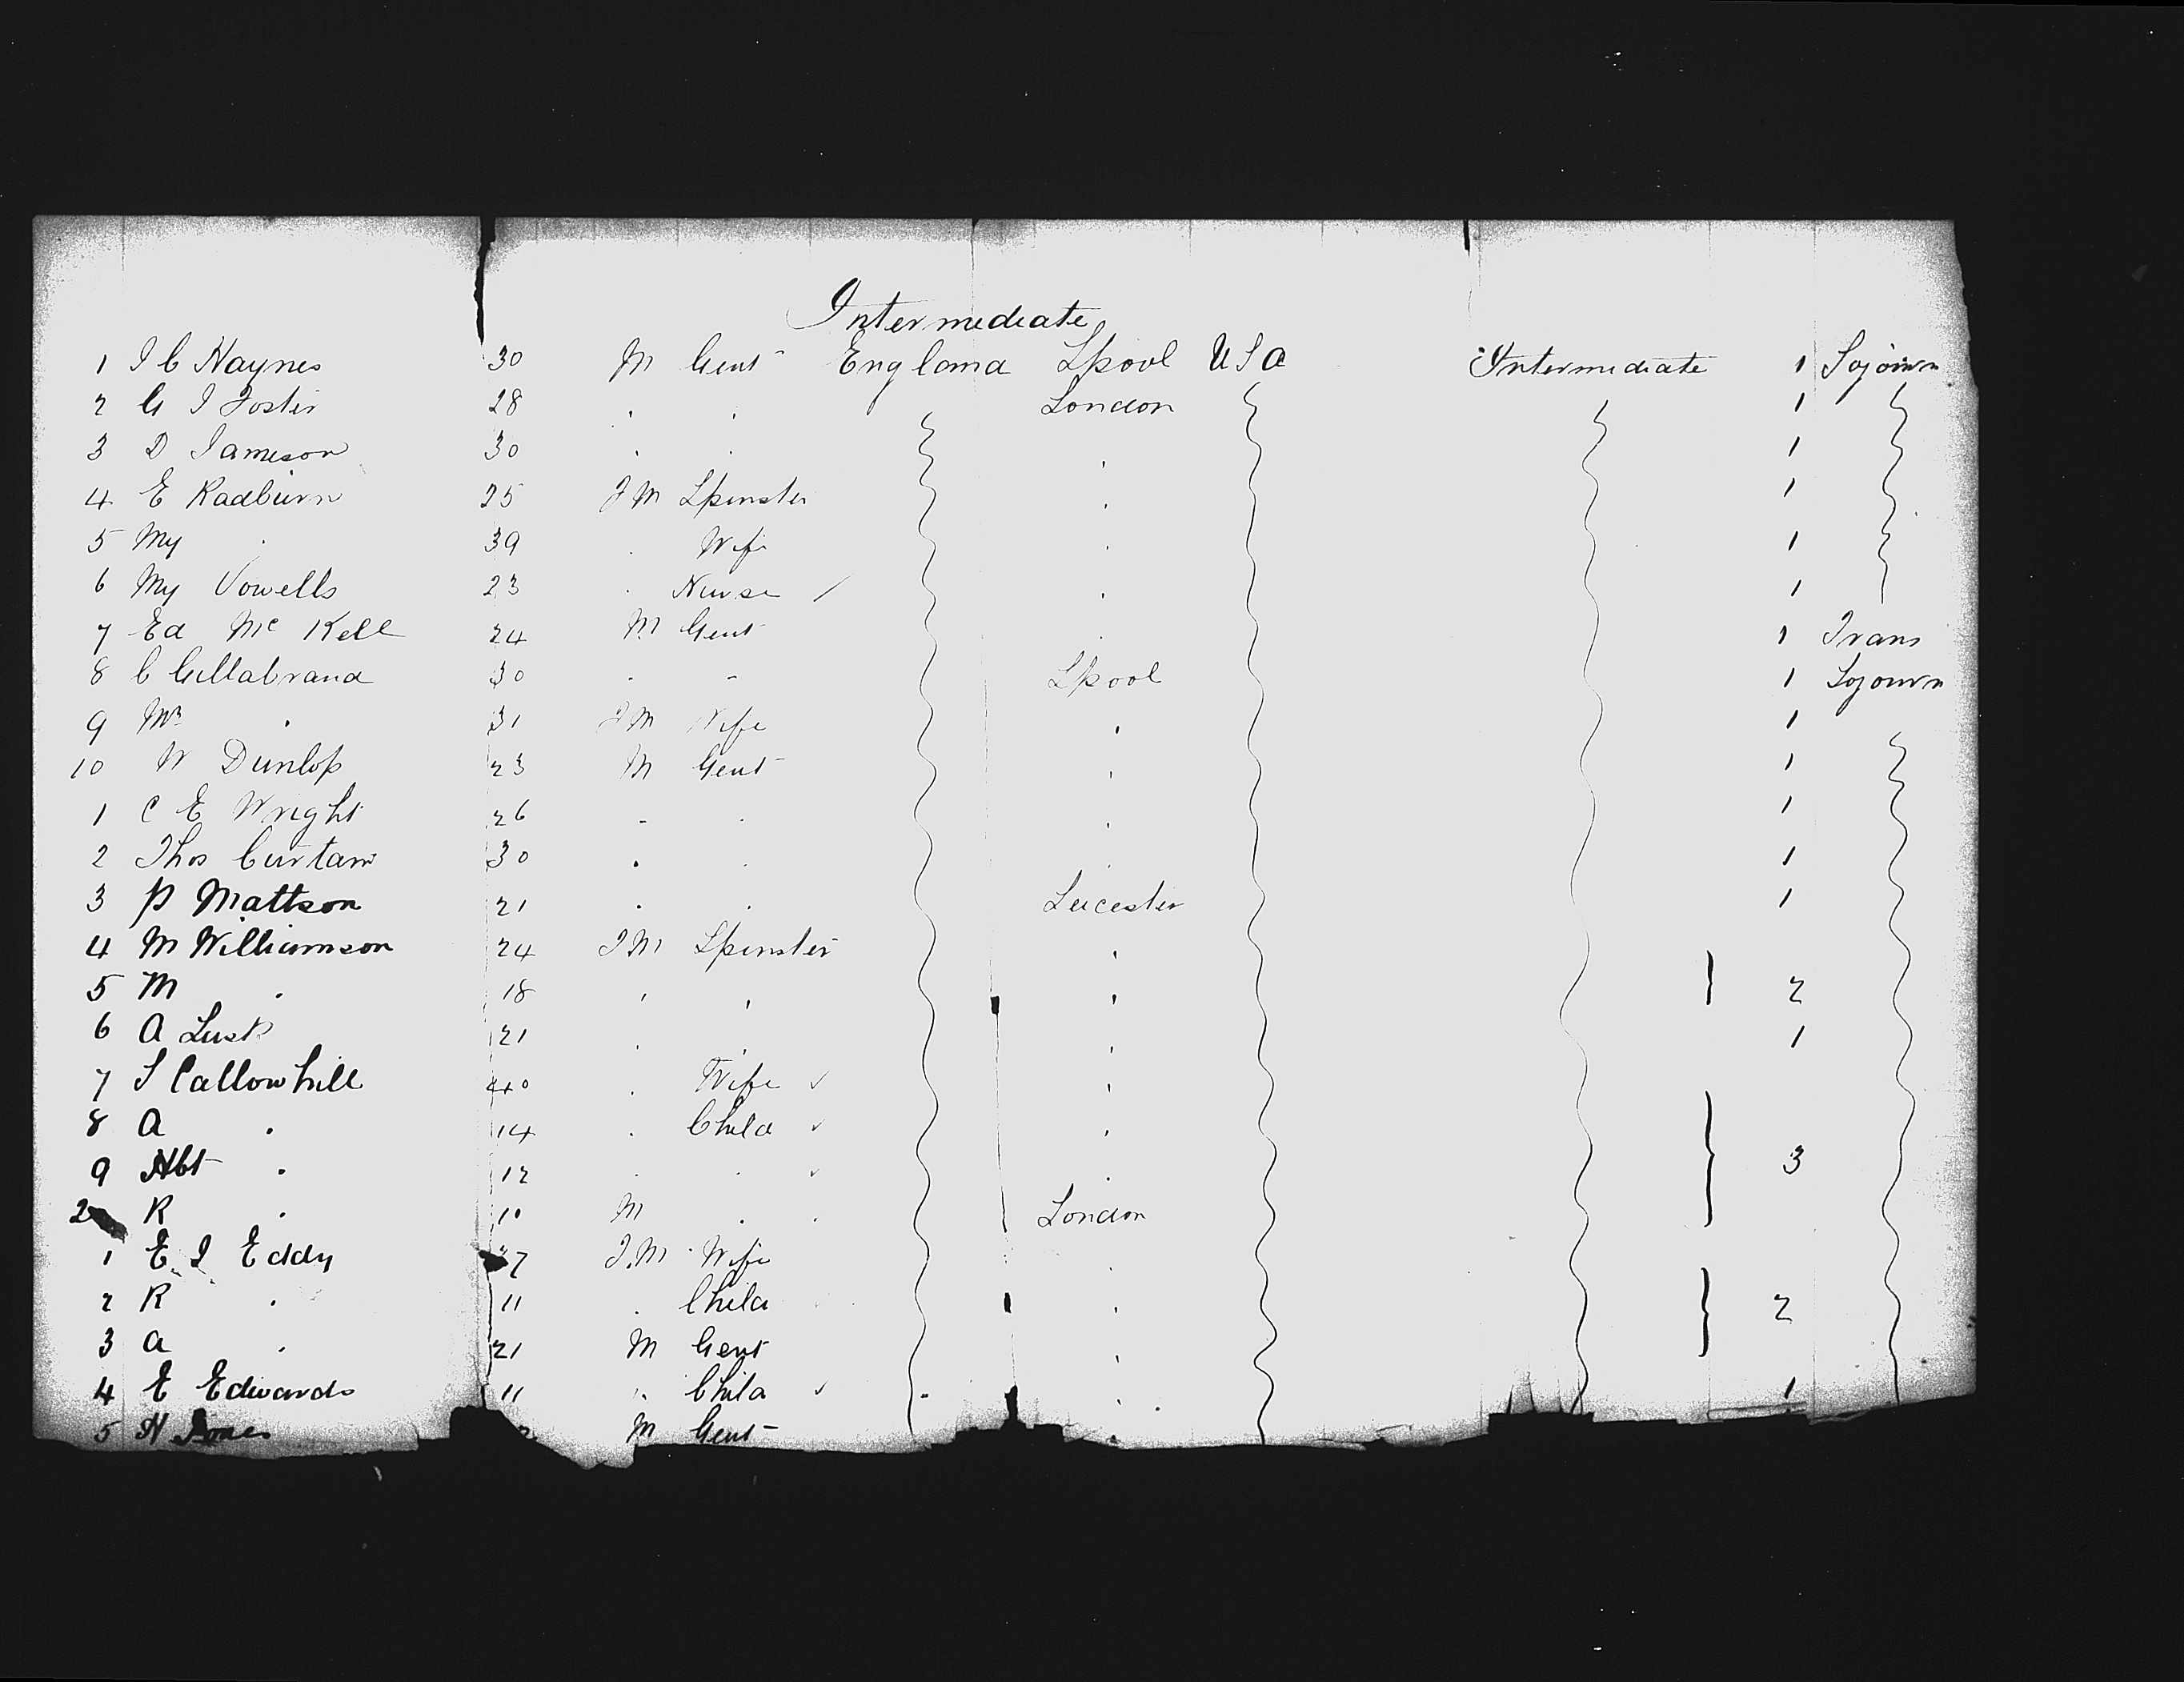 Intermediate
1 J C Haynes 30 M Gent England Lpool USA Intermediate 1 Sojourn
2 G J Foster 28 " " London 1
3 D Jameson 30 " " " 1
4 E Radburn 25 FM Spinster " 1
5 My " 39 " Wife " 1
6 My Vowells 23 " Nurse / " 1
7 Ed Mc Kell 24 M Gent " 1 Trans
8 C Gillabrand 30 " " Lpool 1 Sojourn
9 Mrs " 31 FM Wife " 1
10 W Dunlop 23 M Gent " 1
1 C E Wright 26 " " " 1
2 Thos Curtain 30 " " " 1
3 P Mattson 21 " " Leicester 1
4 M Williamson 24 FM Spinster "
5 M " 18 " " " } 2
6 A Lusk 21 " " " 1
7 S Callowhill 40 " Wife ✓ "
8 A " 14 " Child ✓ "
9 Hbt " 12 " " ✓ " } 3
2 R " 10 M " " London
1 E. J Eddy 37 F.M Wife "
2 R " 11 " Child " } 2
3 A " 21 M Gent "
4 E Edwards 11 " Child ✓ " 1
5 H Jones M Gent "